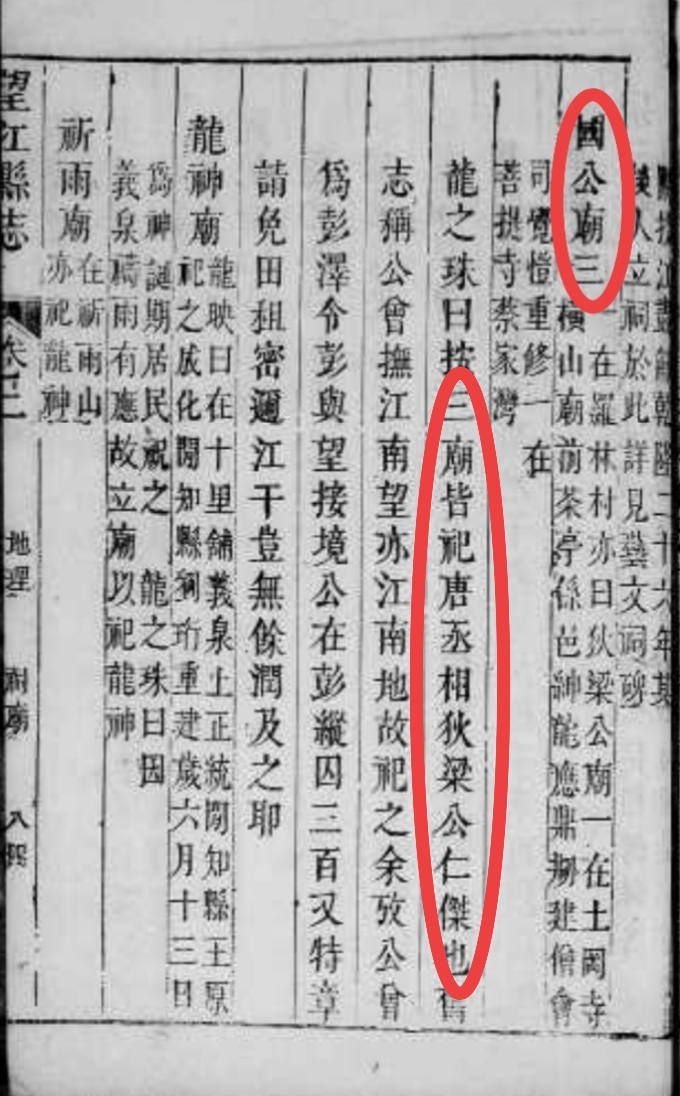 二十六年某
人立祠於此詳見藝文
國公廟三
一在羅林村亦曰狄梁公廟一在土岡寺
橫山廟前茶亭係邑紳龍應鼎建僧會
司覺愷重修一在
菩提寺蔡家灣
龍之珠曰按三廟皆祀唐丞相狄梁公仁傑也舊
志稱公會撫江南望亦江南地故祀之余攷公會
爲彭澤令彭與望接境公在彭縱囚三百又特章
請免田租密邇江干豈無餘潤及之耶
龍神廟
龍映曰在十里舖義泉上正統間知縣王原
祀之成化間知縣珩重建歲六月十三日
爲神誕期居民祝之 龍之珠曰因
義泉禱雨有應故立廟以祀龍神
祈雨廟
在祈雨山
亦祀龍神
望江縣志 卷之二 地理 祠廟 八